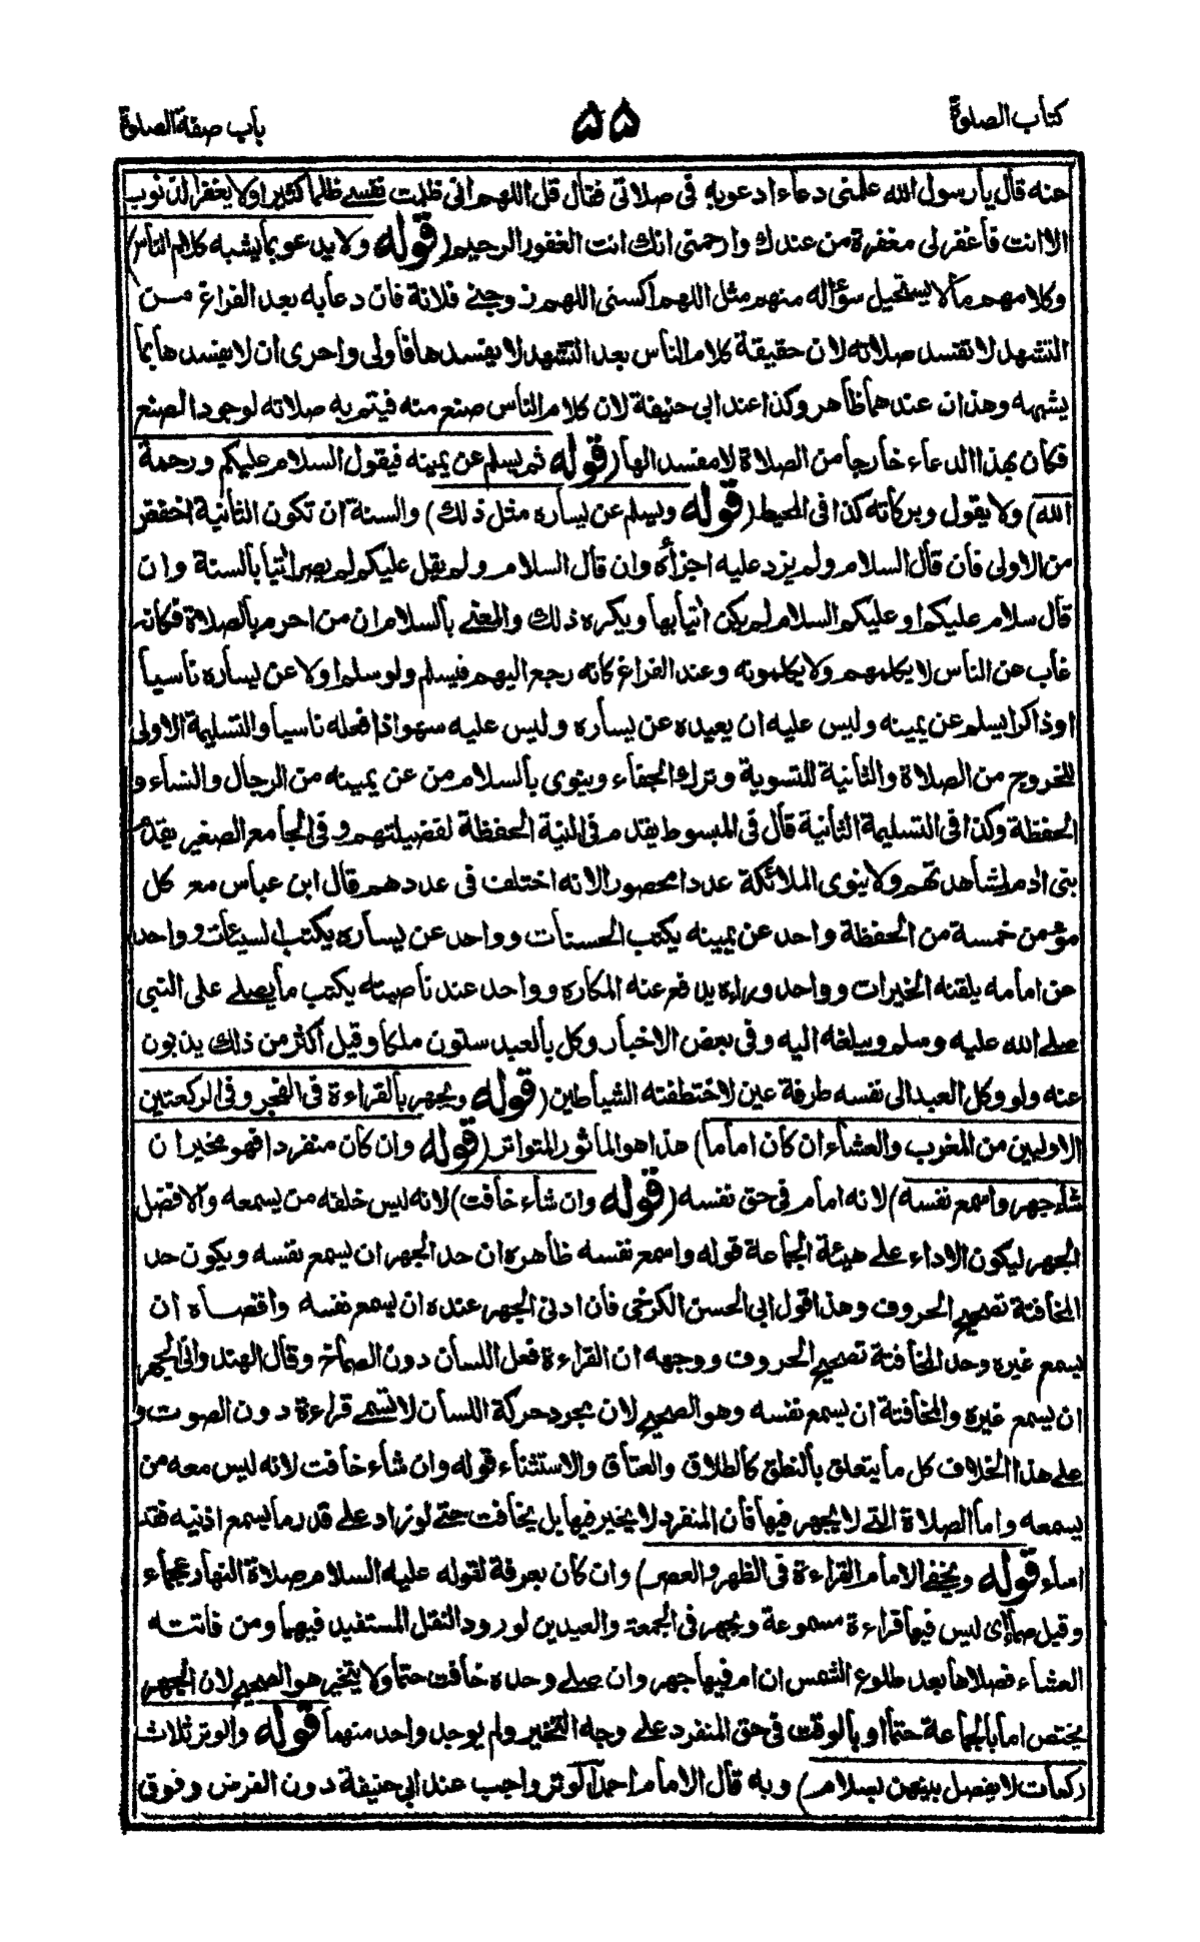 كتاب الصلوة
۵۵
باب صفة الصلوة
عنه قال يا رسول الله علمنى دعاء ادعو به فى صلاتى فقال قل اللهم انى ظلمت نفسى ظلما كثيرا ولا يغفر الذنوب
الا انت فاغفر لى مغفرة من عندك وارحمنى انك انت الغفور الرحيم (قوله ولا يدعو بما يشبه كلام الناس)
وكلامهم ما لا يستحيل سؤاله منهم مثل اللهم اكسنى اللهم زوجنى فلانة فان دعا به بعد الفراغ من
التشهد لا تفسد صلاته لان حقيقة كلام الناس بعد التشهد لا يفسدها فاولى واحرى ان لا يفسدها بما
يشبهه وهذا ان عندهما ظاهر وكذا عند ابى حنيفة لان كلام الناس صنع منه فيتم به صلاته لوجود الصنع
فكان بهذا الدعاء خارجا من الصلاة لا مفسدا لها (قوله ثم يسلم عن يمينه فيقول السلام عليكم ورحمة
الله) ولا يقول وبركاته كذا فى المحيط (قوله ويسلم عن يساره مثل ذلك) والسنة ان تكون الثانية اخفض
من الاولى فان قال السلام ولم يزد عليه اجزأه وان قال السلام ولم يقل عليكم لم يصر اٰتيا بالسنة وان
قال سلام عليكم او عليكم السلام لم يكن اٰتيا بها ويكره ذلك والمعنى بالسلام ان من احرم بالصلاة فكانه
غاب عن الناس لا يكلمهم ولا يكلمونه وعند الفراغ كانه رجع اليهم فيسلم ولو سلم اولا عن يساره ناسيا
او ذاكرا يسلم عن يمينه وليس عليه ان يعيده عن يساره وليس عليه سهو اذا فعله ناسيا والتسليمة الاولى
للخروج من الصلاة والثانية للتسوية وترك الجفاء وينوى بالسلام من عن يمينه من الرجال والنساء و
الحفظة وكذا فى التسليمة الثانية قال فى المبسوط يقدم فى النية الحفظة لفضيلتهم وفى الجامع الصغير يقدم
بنى ادم لمشاهدتهم ولا ينوى الملائكة عددا محصورا لانه اختلف فى عددهم قال ابن عباس مع كل
مؤمن خمسة من الحفظة واحد عن يمينه يكتب الحسنات وواحد عن يساره يكتب السيئات وواحد
عن امامه يلقنه الخيرات وواحد وراءه يدفع عنه المكاره وواحد عند ناصيته يكتب ما يصلى على النبي
صلى الله عليه وسلم ويبلغه اليه وفى بعض الاخبار وكل بالعبد ستون ملكا وقيل اكثر من ذلك يذبون
عنه ولو وكل العبد الى نفسه طرفة عين لاختطفته الشياطين (قوله ويجهر بالقراءة فى الفجر وفى الركعتين
الاوليين من المغرب والعشاء ان كان اماما) هذا هو الماثور المتواتر (قوله وان كان منفردا فهو مخير ان
شاء جهر واسمع نفسه) لانه امام فى حق نفسه (قوله وان شاء خافت) لانه ليس خلفه من يسمعه والافضل
الجهر ليكون الاداء على هيئة الجماعة قوله واسمع نفسه ظاهره ان حد الجهر ان يسمع نفسه ويكون حد
المخافتة تصحيح الحروف وهذا قول ابى الحسن الكرخى فان ادنى الجهر عنده ان يسمع نفسه واقصاه ان
يسمع غيره وحد المخافتة تصحيح الحروف ووجهه ان القراءة فعل اللسان دون الصماخ وقال الهندوانى الجهر
ان يسمع غيره والمخافتة ان يسمع نفسه وهو الصحيح لان مجرد حركة اللسان لا تسمى قراءة دون الصوت و
على هذا الخلاف كل ما يتعلق بالنطق كالطلاق والعتاق والاستثناء قوله وان شاء خافت لانه ليس معه من
يسمعه واما الصلاة التى لا يجهر فيها فان المنفرد لا يخير فيها بل يخافت حتى لو زاد على قدر ما يسمع اذنيه فقد
اساء قوله ويخفى الامام القراءة فى الظهر والعصر) وان كان بعرفة لقوله عليه السلام صلاة النهار عجماء
وقيل صماء اى ليس فيها قراءة مسموعة ويجهر فى الجمعة والعيدين لورود النقل المستفيد فيهما ومن فاتته
العشاء فصلاها بعد طلوع الشمس ان ام فيها جهر وان صلى وحده خافت حتما ولا يتخير هو الصحيح لان الجهر
يختص اما بالجماعة حتما او بالوقت فى حق المنفرد على وجه التخيير ولم يوجد واحد منهما قوله والوتر ثلاث
ركعات لا يفصل بينهن بسلام) وبه قال الامام احمد الوتر واجب عند ابى حنيفة دون الفرض وفوق